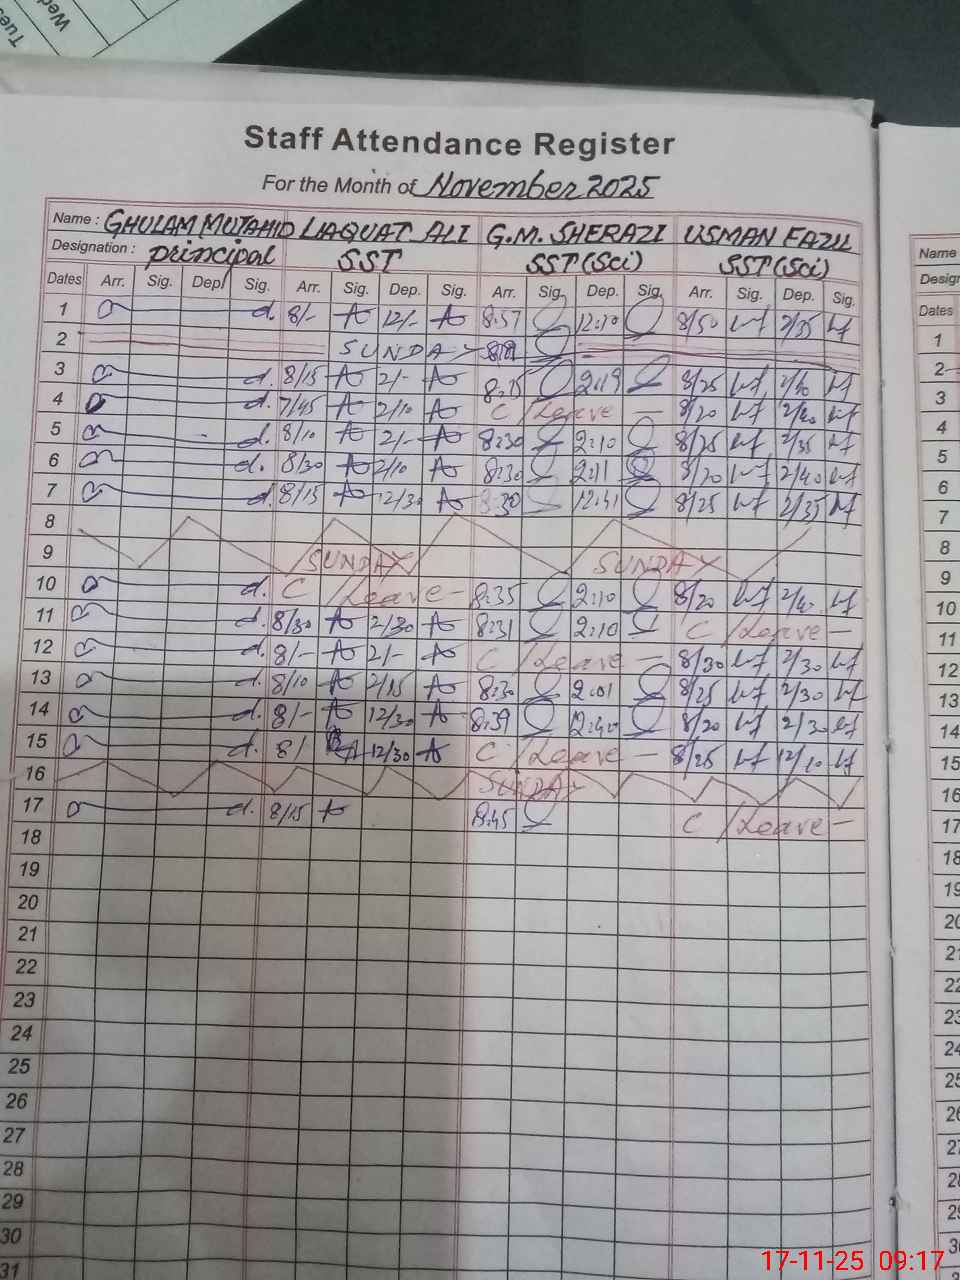 Tues
Wed
Staff Attendance Register
For the Month of November 2025
Name : GHULAM MUTAHID LIAQUAT ALI G.M. SHERAZI USMAN FAZIL
Designation : principal SST SST (Sci) SST (Sci)
Dates Arr. Sig. Dep. Sig. Arr. Sig. Dep. Sig. Arr. Sig. Dep. Sig. Arr. Sig. Dep. Sig.
1 8/- 12/- 8:57 12:10 8/50 2/35
2 SUNDAY
3 8/15 2/- 8:15 2:19 8/25 2/40
4 7/45 2/10 C/Leave - 8/20 2/40
5 8/10 2/- 8:30 2:10 8/25 2/35
6 8/30 2/10 8:30 2:11 8/20 2/40
7 8/15 12/30 8:30 12:41 8/25 2/35
8
9 SUNDAY SUNDAY
10 C/Leave - 8:35 2:10 8/20 2/40
11 8/30 2/30 8:31 2:10 C/Leave -
12 8/- 2/- C/Leave - 8/30 2/30
13 8/10 2/15 8:30 2:01 8/25 2/30
14 8/- 12/30 8:39 12:40 8/20 2/30
15 8/ 12/30 C/Leave - 8/25 12/10
16 SUNDAY
17 8/15 8:45 C/Leave -
18
19
20
21
22
23
24
25
26
27
28
29
30
31
Name
Design
Dates
1
2
3
4
5
6
7
8
9
10
11
12
13
14
15
16
17
18
19
20
21
22
23
24
25
26
27
28
29
30
17-11-25 09:17